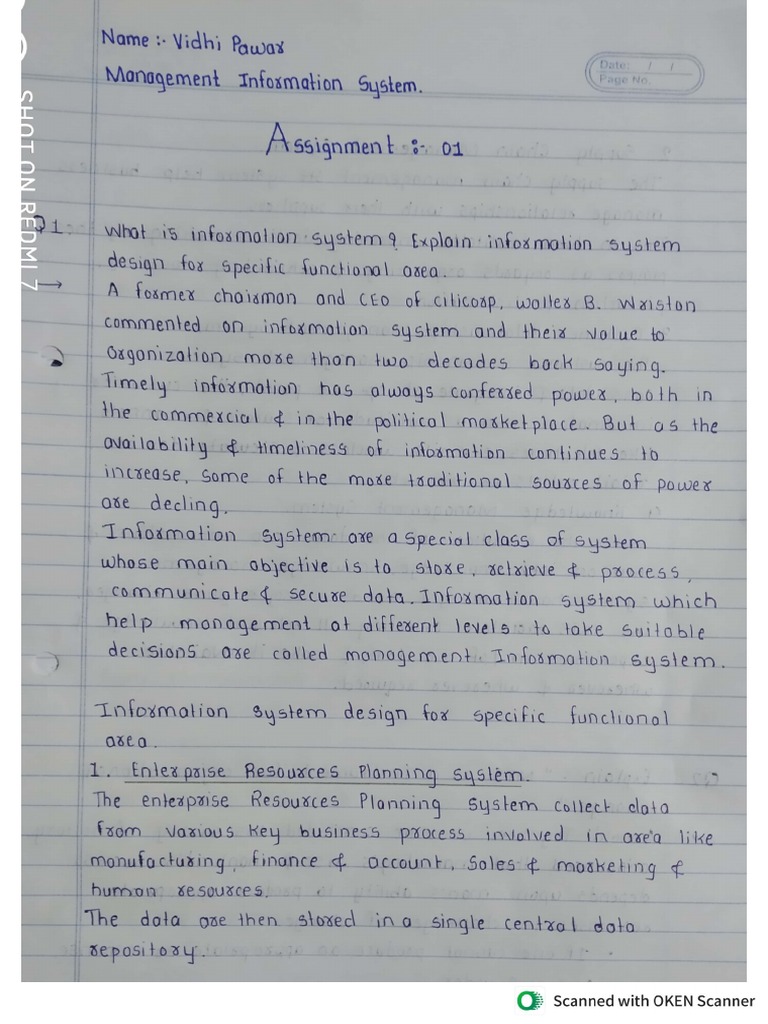 Name :- Vidhi Pawar
Management Information System.
Date: / /
Page No.
Assignment :- 01
SHOT ON REDMI 7
Q1. What is information system? Explain information system
design for specific functional area.
→ A former chairman and CEO of citicorp, walter B. Wriston
commented on information system and their value to
Organization more than two decades back saying.
Timely information has always conferred power, both in
the commercial & in the political marketplace. But as the
availability & timeliness of information continues to
increase, some of the more traditional sources of power
are decling.
Information system are a special class of system
whose main objective is to store, retrieve & process,
communicate & secure data. Information system which
help management at different levels to take suitable
decisions are called management Information system.
Information system design for specific functional
area.
1. Enterprise Resources Planning system.
The enterprise Resources Planning system collect data
from various key business process involved in area like
manufacturing, finance & account, sales & marketing &
human resources.
The data are then stored in a single central data
repository.
Scanned with OKEN Scanner